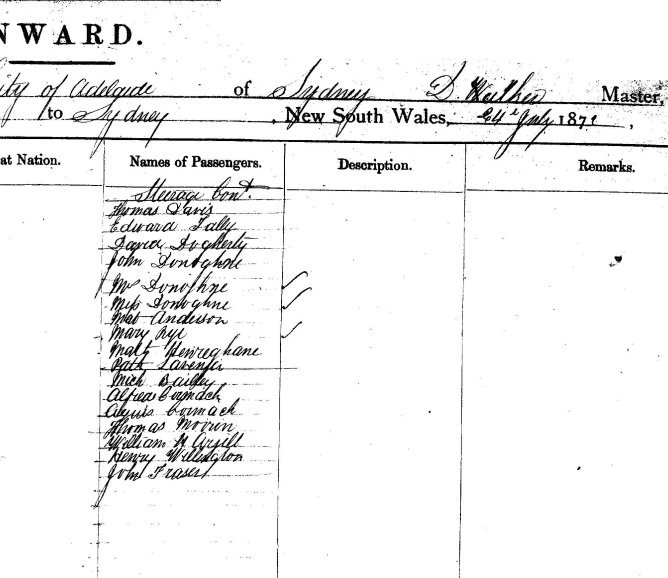 NWARD.
ity of Adelaide of Sydney D. Walker Master,
to Sydney, New South Wales, 24th July 1871,
at Nation. Names of Passengers. Description. Remarks.
Steerage Cont.
Thomas Davis
Edward Tally
David Dogherty
John Donoghue
Mrs Donoghue
Miss Donoghue
Mat Anderson
Mary Rye
Matt
Patk Lavender
Mich Bailey
Alfred Cormack
Cormack
Thomas
William H
Henry Wellington
John Fraser